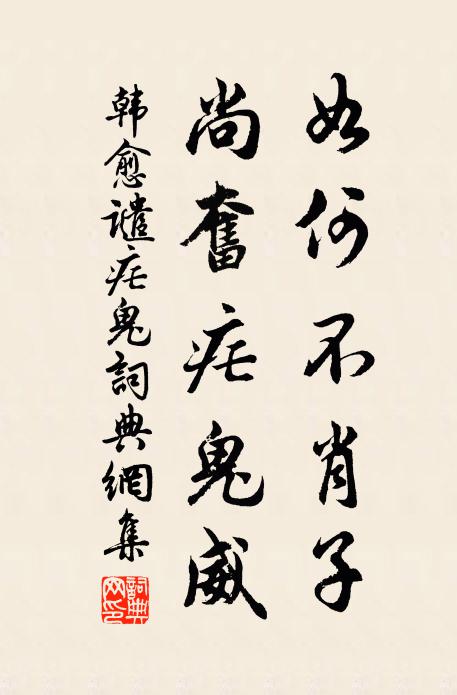 如何不肖子
尚奮疟鬼威
韩愈譴疟鬼詞典網集
詞典网印